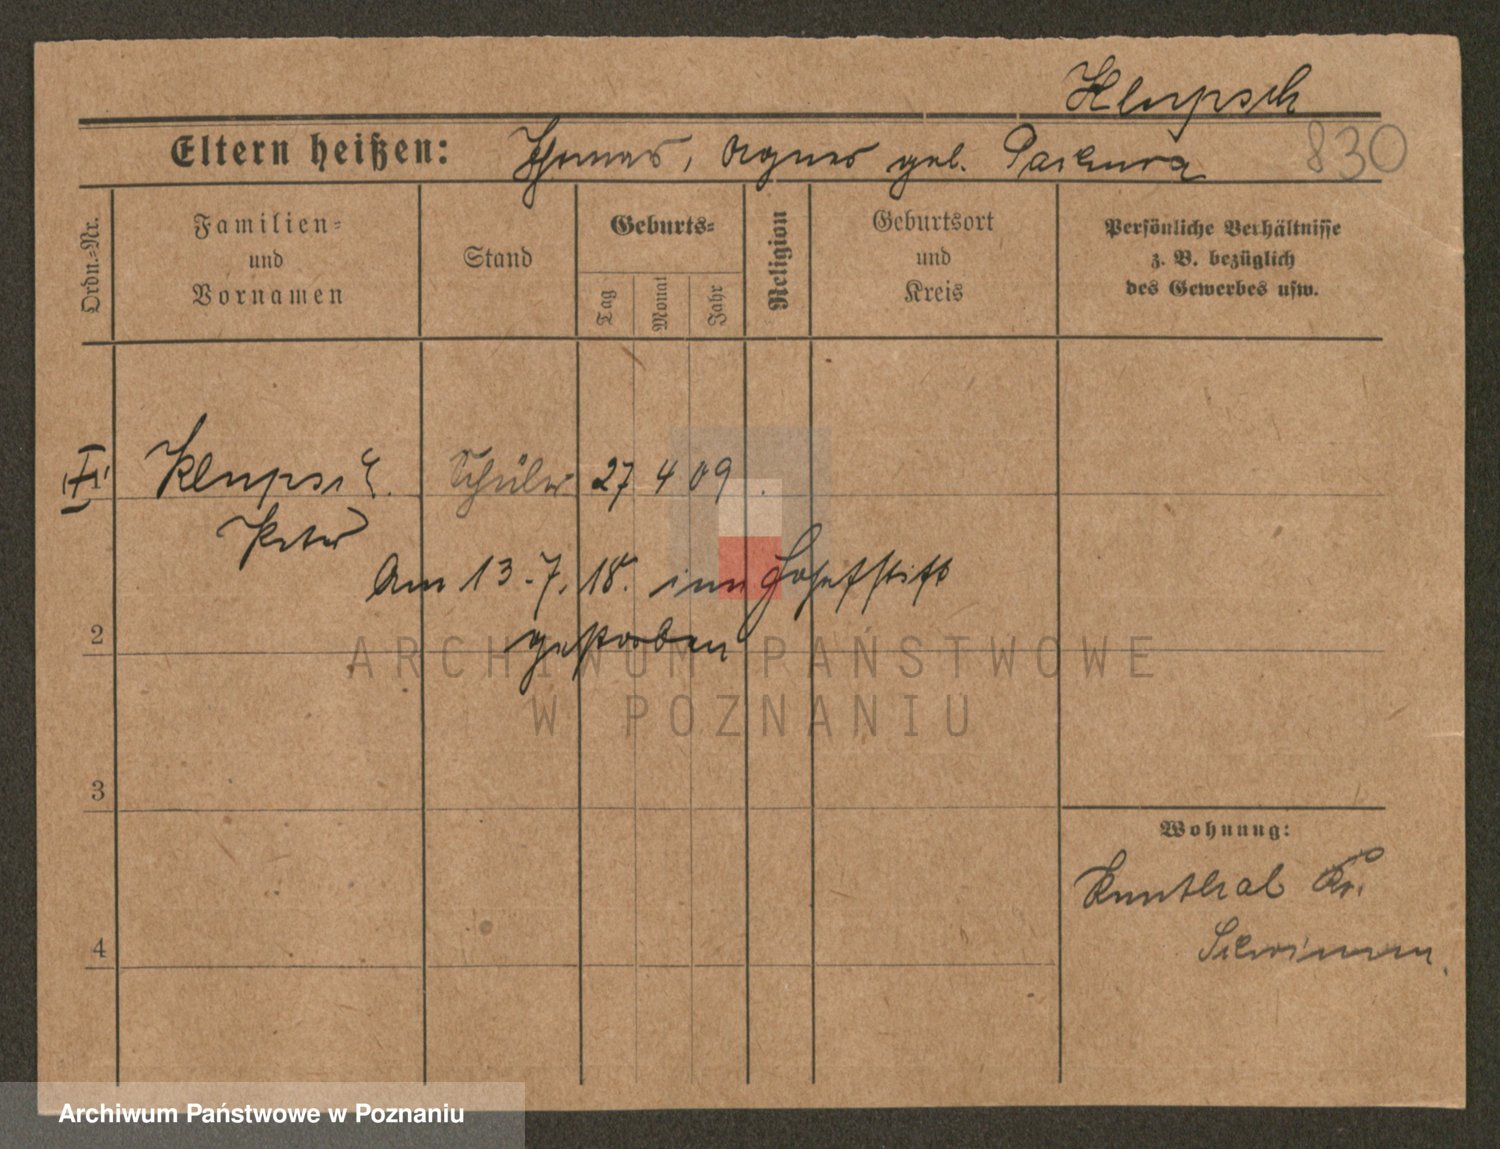 Klupsch
Eltern heißen: Thomas, Agnes geb. 830
Ordn.-Nr.
Familien-
und
Vornamen
Stand
Geburts-
Tag
Monat
Jahr
Religion
Geburtsort
und
Kreis
Persönliche Verhältnisse
z. B. bezüglich
des Gewerbes usw.
1 Klupsch. Schüler 27 4 09.
Peter
Am 13.7.18. im Josefstift
gestorben
2
ARCHIWUM PAŃSTWOWE
W POZNANIU
3
Wohnung:
Kr.
4
Archiwum Państwowe w Poznaniu